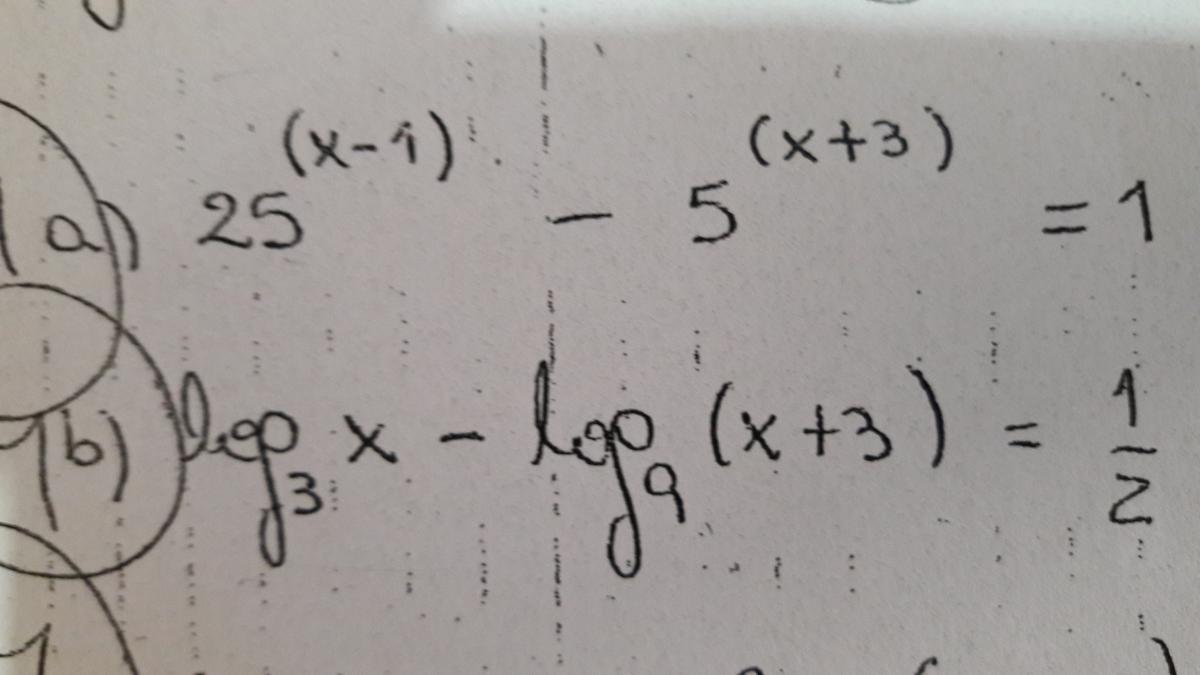 a) 25^(x-1) - 5^(x+3) = 1
(b) log₃ x - log₉ (x+3) = 1/2